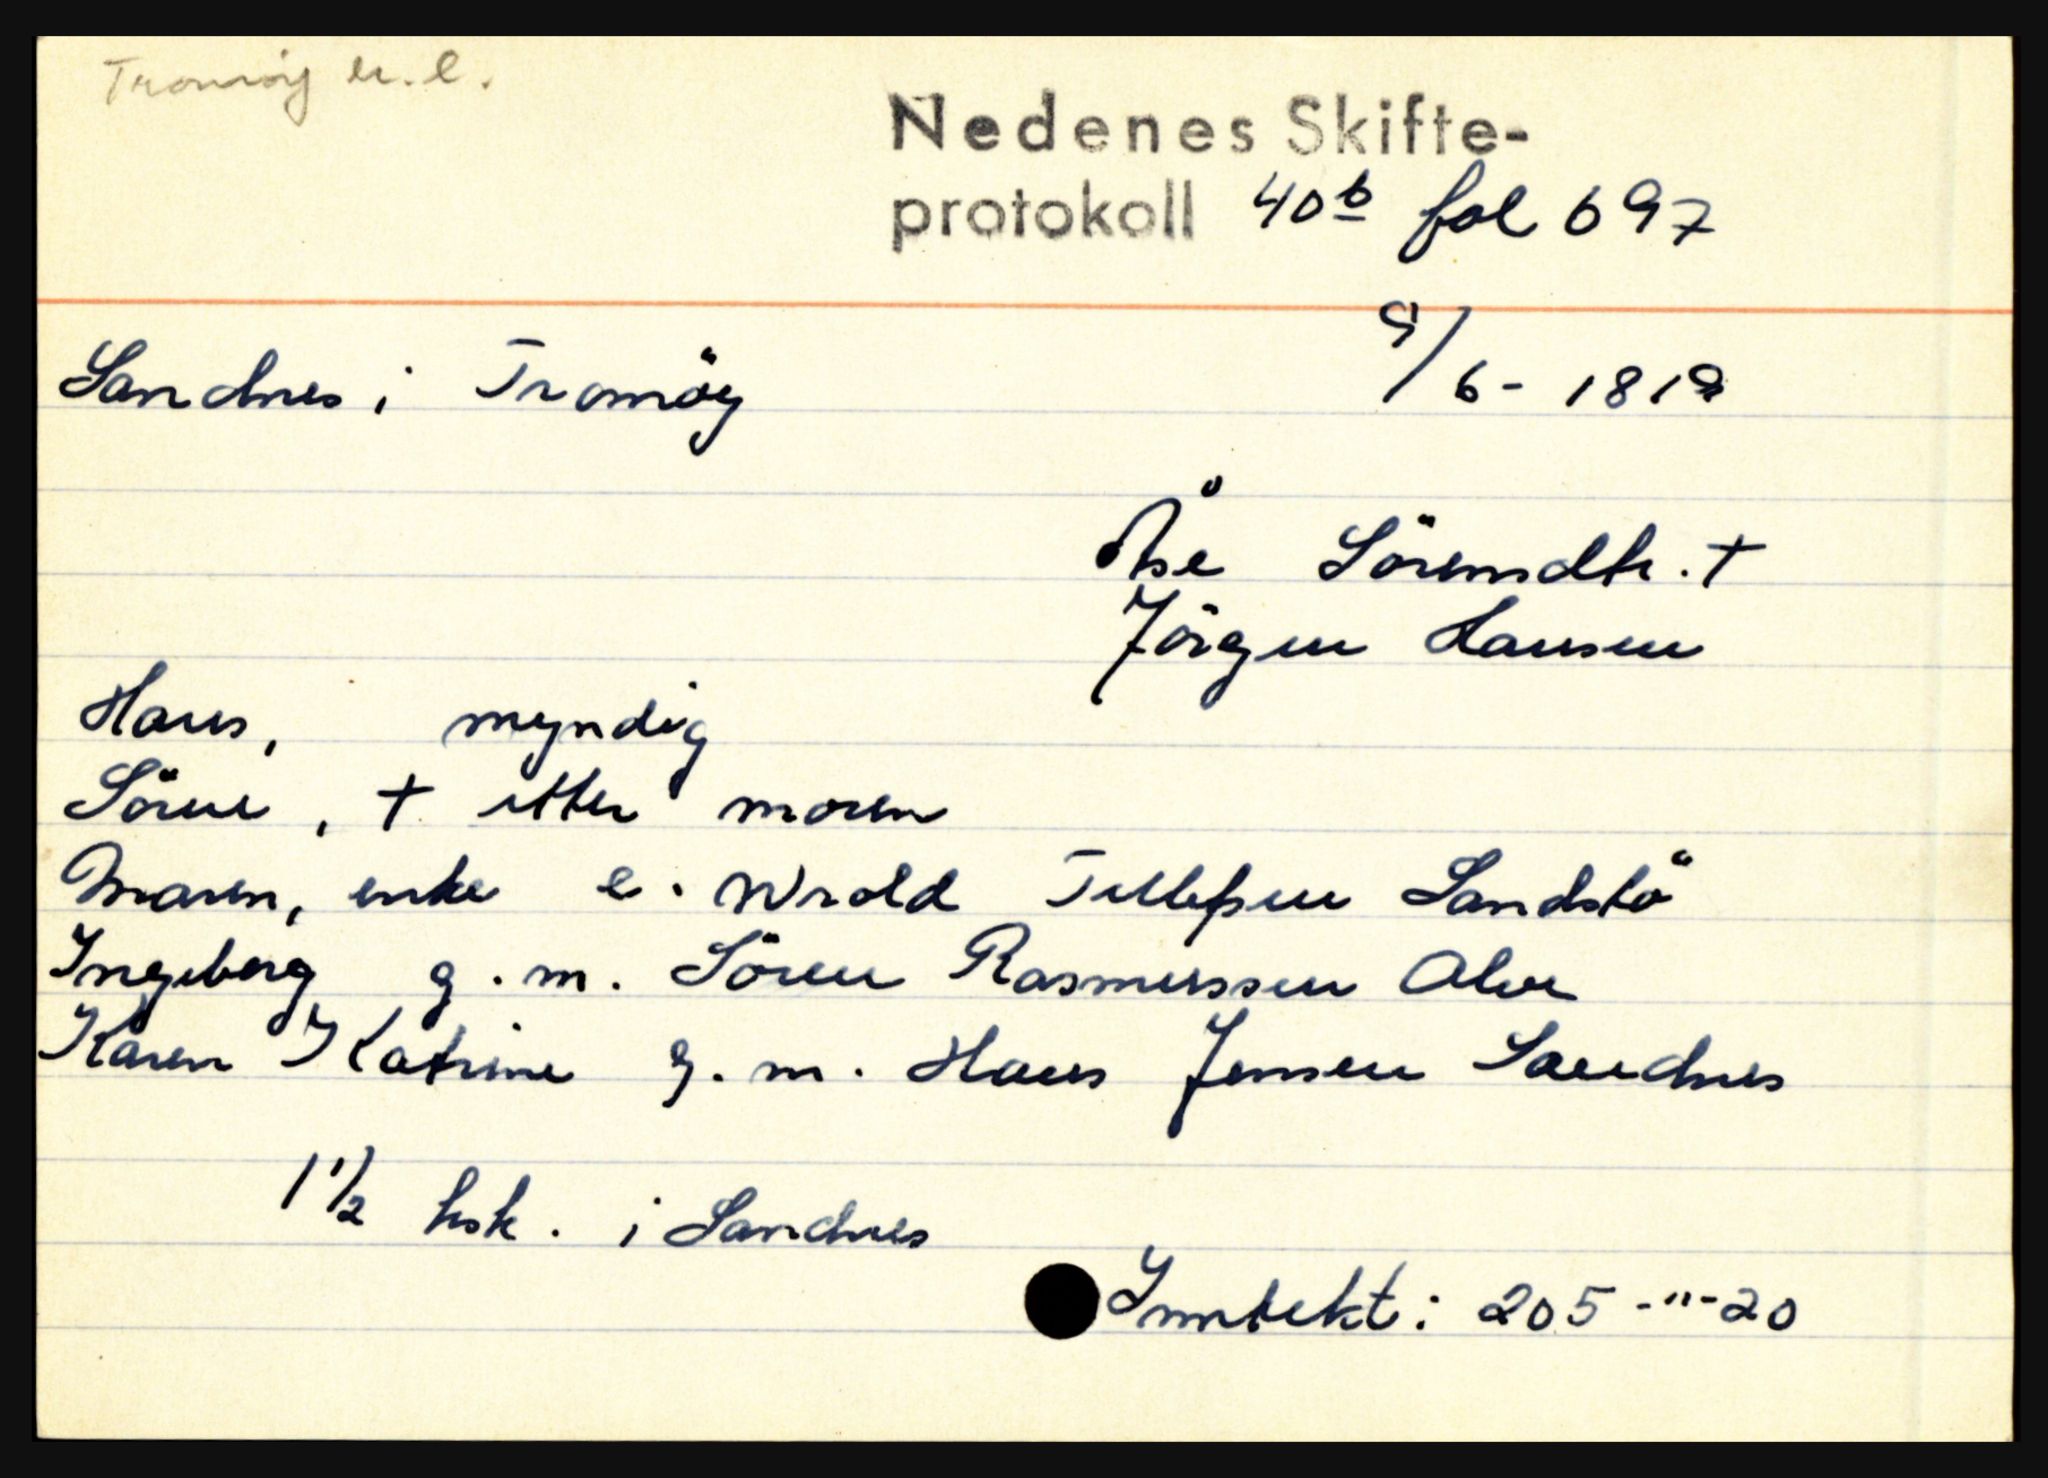 Tromøy u.l.
Nedenes Skifte-
protokoll 40b fol 697
9/6- 1819
Sandnes i Tromöy
Åse Sörensdtr. †
Jörgen Hansen
Hans, myndig
Sören, † etter moren
Maren, enke e. Wrold Tellefsen Sandstö
Ingeborg g.m. Sören Rasmussen Alve
Karen Katrine g.m. Hans Jensen Sandnes
1 1/2 hsk. i Sandnes
Inntekt: 205-"-20